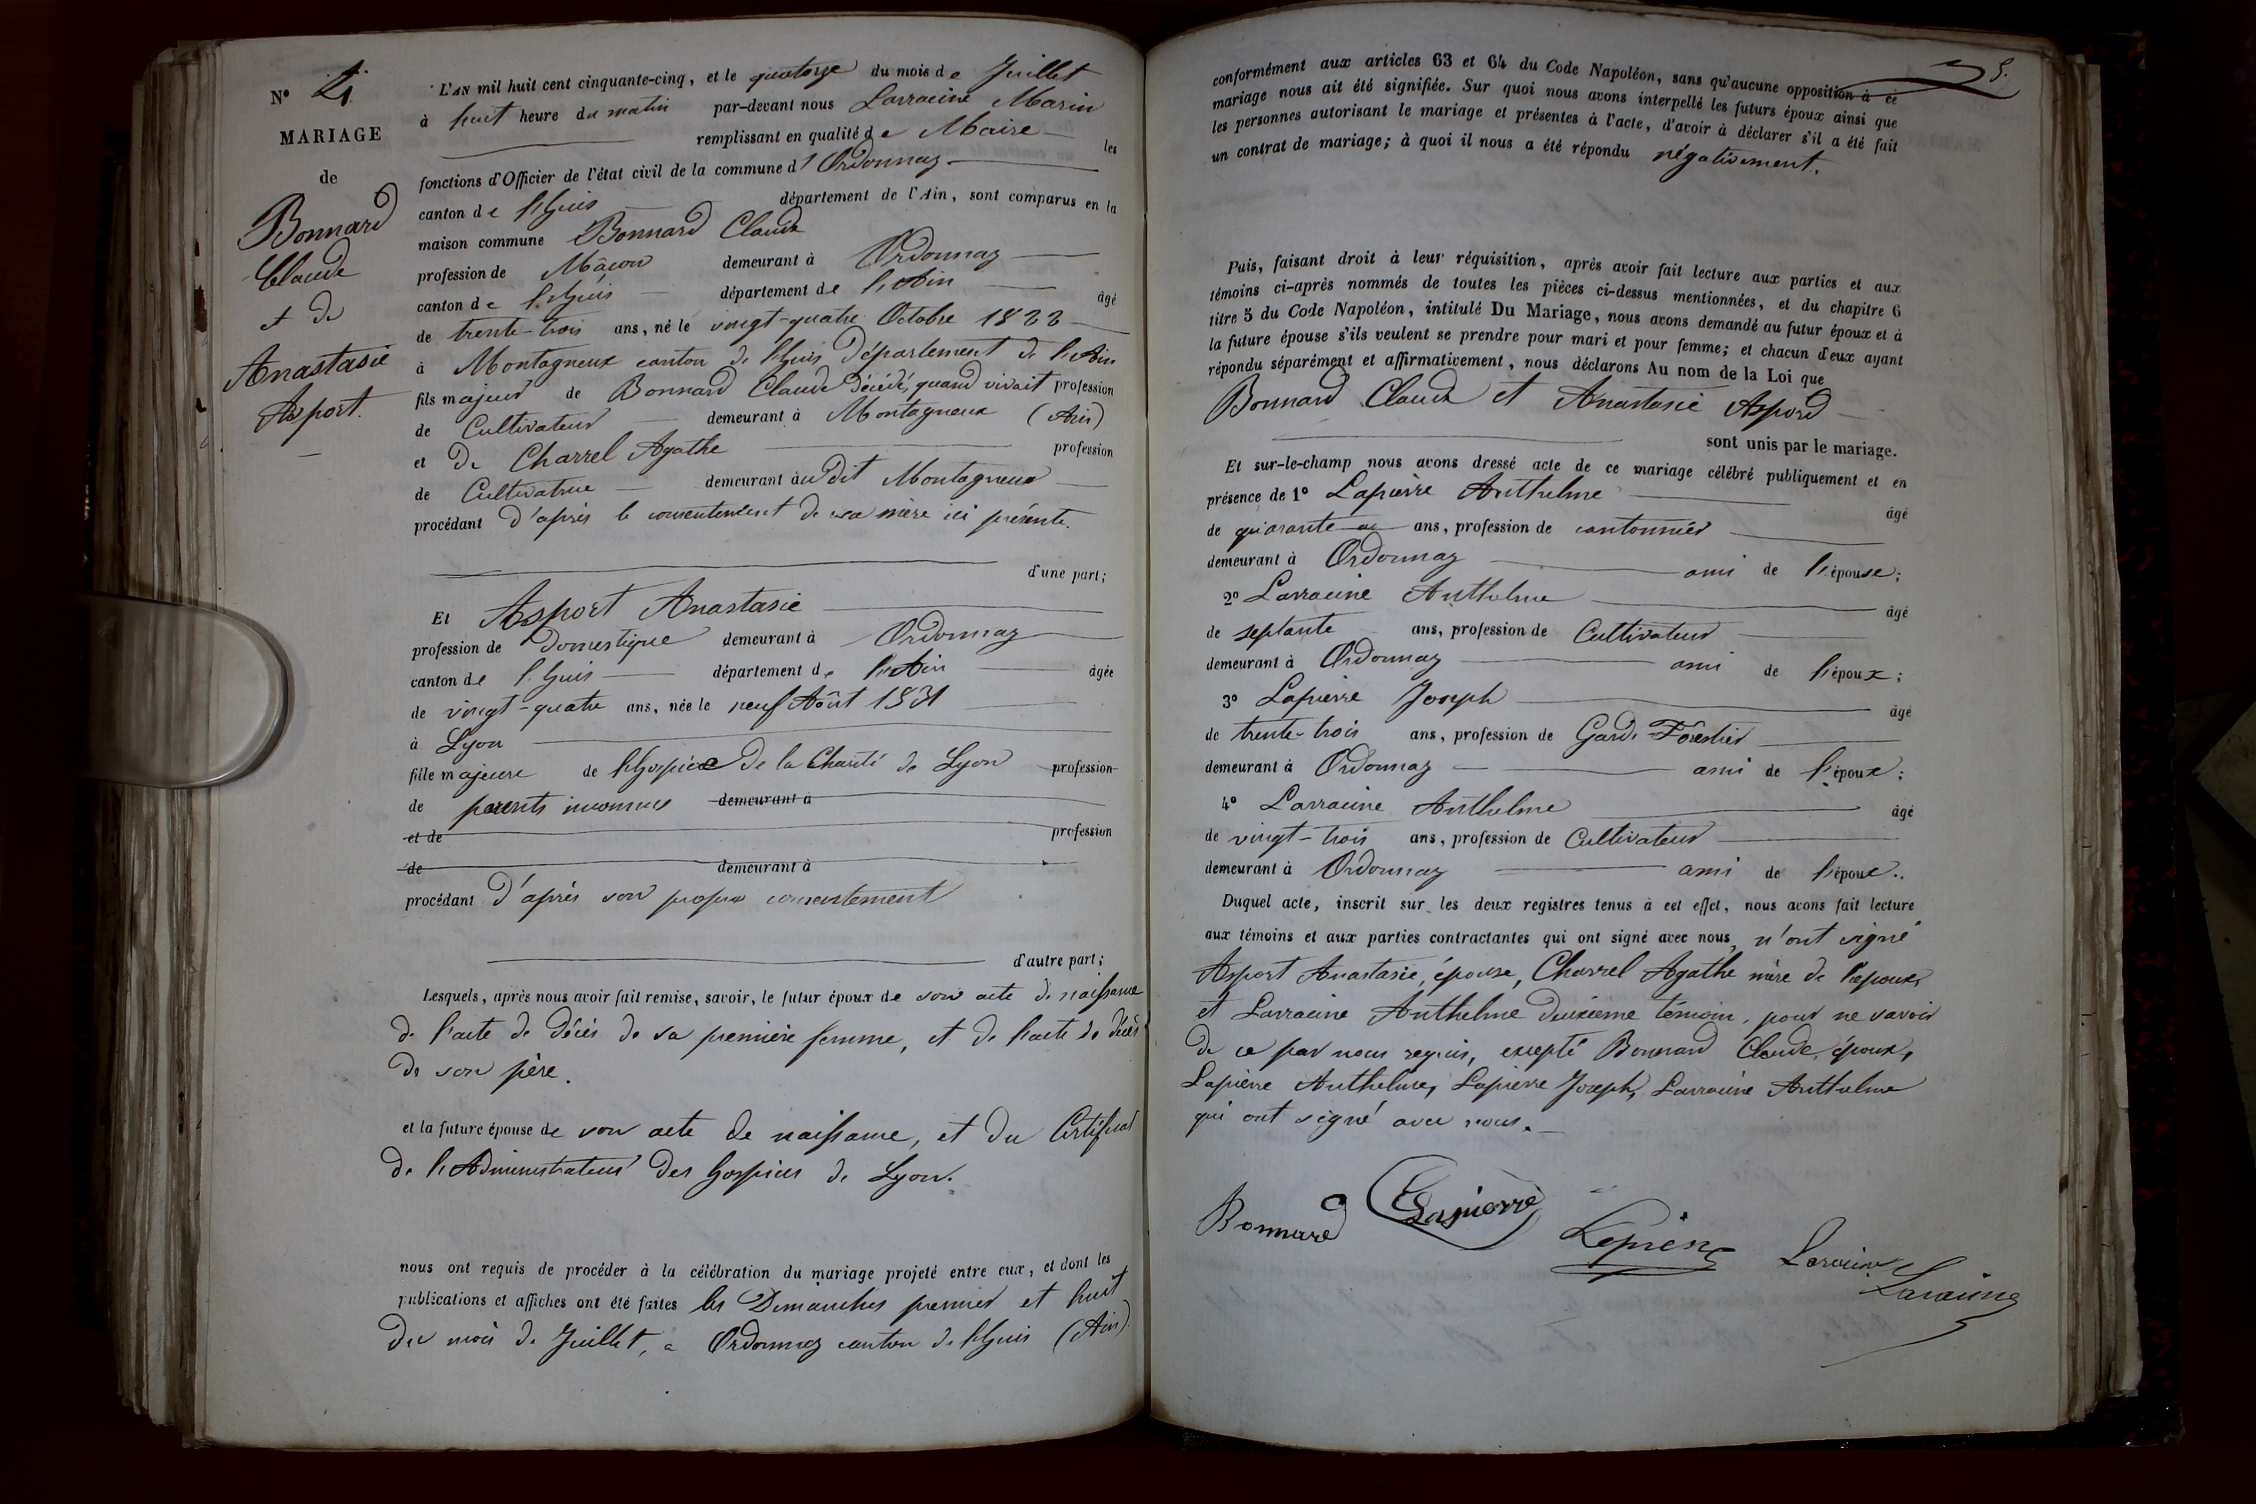 N° 4
MARIAGE
de
Bonnard
Claude
et de
Anastasie
Asport.
L'AN mil huit cent cinquante-cinq, et le quatorze du mois de Juillet
à huit heure du matin par-devant nous Larracine Marin
remplissant en qualité de Maire les
fonctions d'Officier de l'état civil de la commune d'Ordonnaz
canton de l'huis département de l'Ain, sont comparus en la
maison commune Bonnard Claude
profession de Mâçon demeurant à Ordonnaz
canton de l'huis département de l'Ain âgé
de trente-trois ans, né le vingt-quatre Octobre 1822
à Montagneux canton de l'huis Département de l'Ain
fils majeur de Bonnard Claude décédé, quand vivait profession
de Cultivateur demeurant à Montagneux (Ain)
et de Charrel Agathe profession
de Cultivatrice demeurant àu dit Montagneux
procédant d'après le consentement de sa mère ici présente.
d'une part;
Et Asport Anastasie
profession de Domestique demeurant à Ordonnaz
canton de l'huis département de l'Ain âgée
de vingt-quatre ans, née le neuf Août 1831
à Lyon
fille majeure de l'hospice de la Charité de Lyon profession
de parents inconnus demeurant à
et de profession
de demeurant à
procédant d'après son propre consentement
d'autre part;
Lesquels, après nous avoir fait remise, savoir, le futur époux de son acte de naissance
de l'acte de décès de sa première femme, et de l'acte de décès
de son père.
et la future épouse de son acte de naissance, et du Certificat
de l'Administrateur des hospices de Lyon.
nous ont requis de procéder à la célébration du mariage projeté entre eux, et dont les
publications et affiches ont été faites les Dimanches premier et huit
du mois de Juillet, a Ordonnaz canton de l'huis (Ain).
5.
conformément aux articles 63 et 64 du Code Napoléon, sans qu'aucune opposition à ce
mariage nous ait été signifiée. Sur quoi nous avons interpellé les futurs époux ainsi que
les personnes autorisant le mariage et présentes à l'acte, d'avoir à déclarer s'il a été fait
un contrat de mariage; à quoi il nous a été répondu négativement.
Puis, faisant droit à leur réquisition, après avoir fait lecture aux parties et aux
témoins ci-après nommés de toutes les pièces ci-dessus mentionnées, et du chapitre 6
titre 5 du Code Napoléon, intitulé Du Mariage, nous avons demandé au futur époux et à
la future épouse s'ils veulent se prendre pour mari et pour femme; et chacun d'eux ayant
répondu séparément et affirmativement, nous déclarons Au nom de la Loi que
Bonnard Claude et Anastasie Aspord
sont unis par le mariage.
Et sur-le-champ nous avons dressé acte de ce mariage célébré publiquement et en
présence de 1° Lapierre Anthelme
âgé
de quarante ans, profession de cantonnier
demeurant à Ordonnaz ami de l'épouse;
2° Larracine Anthelme
âgé
de septante ans, profession de Cultivateur
demeurant à Ordonnaz ami de l'époux;
3° Lapierre Joseph
âgé
de trente-trois ans, profession de Garde Forestier
demeurant à Ordonnaz ami de l'époux;
4° Larracine Anthelme
âgé
de vingt-trois ans, profession de Cultivateur
demeurant à Ordonnaz ami de l'époux.
Duquel acte, inscrit sur les deux registres tenus à cet effet, nous avons fait lecture
aux témoins et aux parties contractantes qui ont signé avec nous, n'ont signé
Asport Anastasie, épouse, Charrel Agathe mère de l'époux,
et Larracine Anthelme deuxième témoin, pour ne savoir
de ce par nous requis, excepté Bonnard Claude, époux,
Lapierre Anthelme, Lapierre Joseph, Larracine Anthelme
qui ont signé avec nous.
Bonnard Lapierre
Lapierre Laracine
Laracine